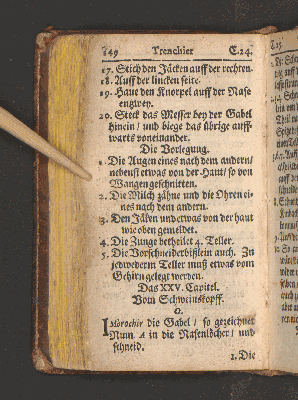 149 Trenchier C.24.
17. Stich den Jäcken auff der rechten.
18. Auff der lincken seite.
19. Haue den Knorpel auff der Nase
entzwey.
20. Steck das Messer bey der Gabel
hinein / und biege das übrige auff-
warts voneinander.
Die Vorlegung.
1. Die Augen eines nach dem andern /
nebenst etwas von der Haut / so von
Wangen geschnitten.
2. Die Milch zähne und die Ohren ei-
nes nach dem andern.
3. Den Jäken und etwas von der haut
wie oben gemeldet.
4. Die Zunge betheilet 4. Teller.
5. Die Vorschneiderbißlein auch. Zu
jedwederm Teller muß etwas vom
Gehirn gelegt werden.
Das XXV. Capitel.
Vom Schweinskopff.
O.
die Gabel / so gezeichnet
Num A in die Nasenlöcher / und
schneid.
1. Die